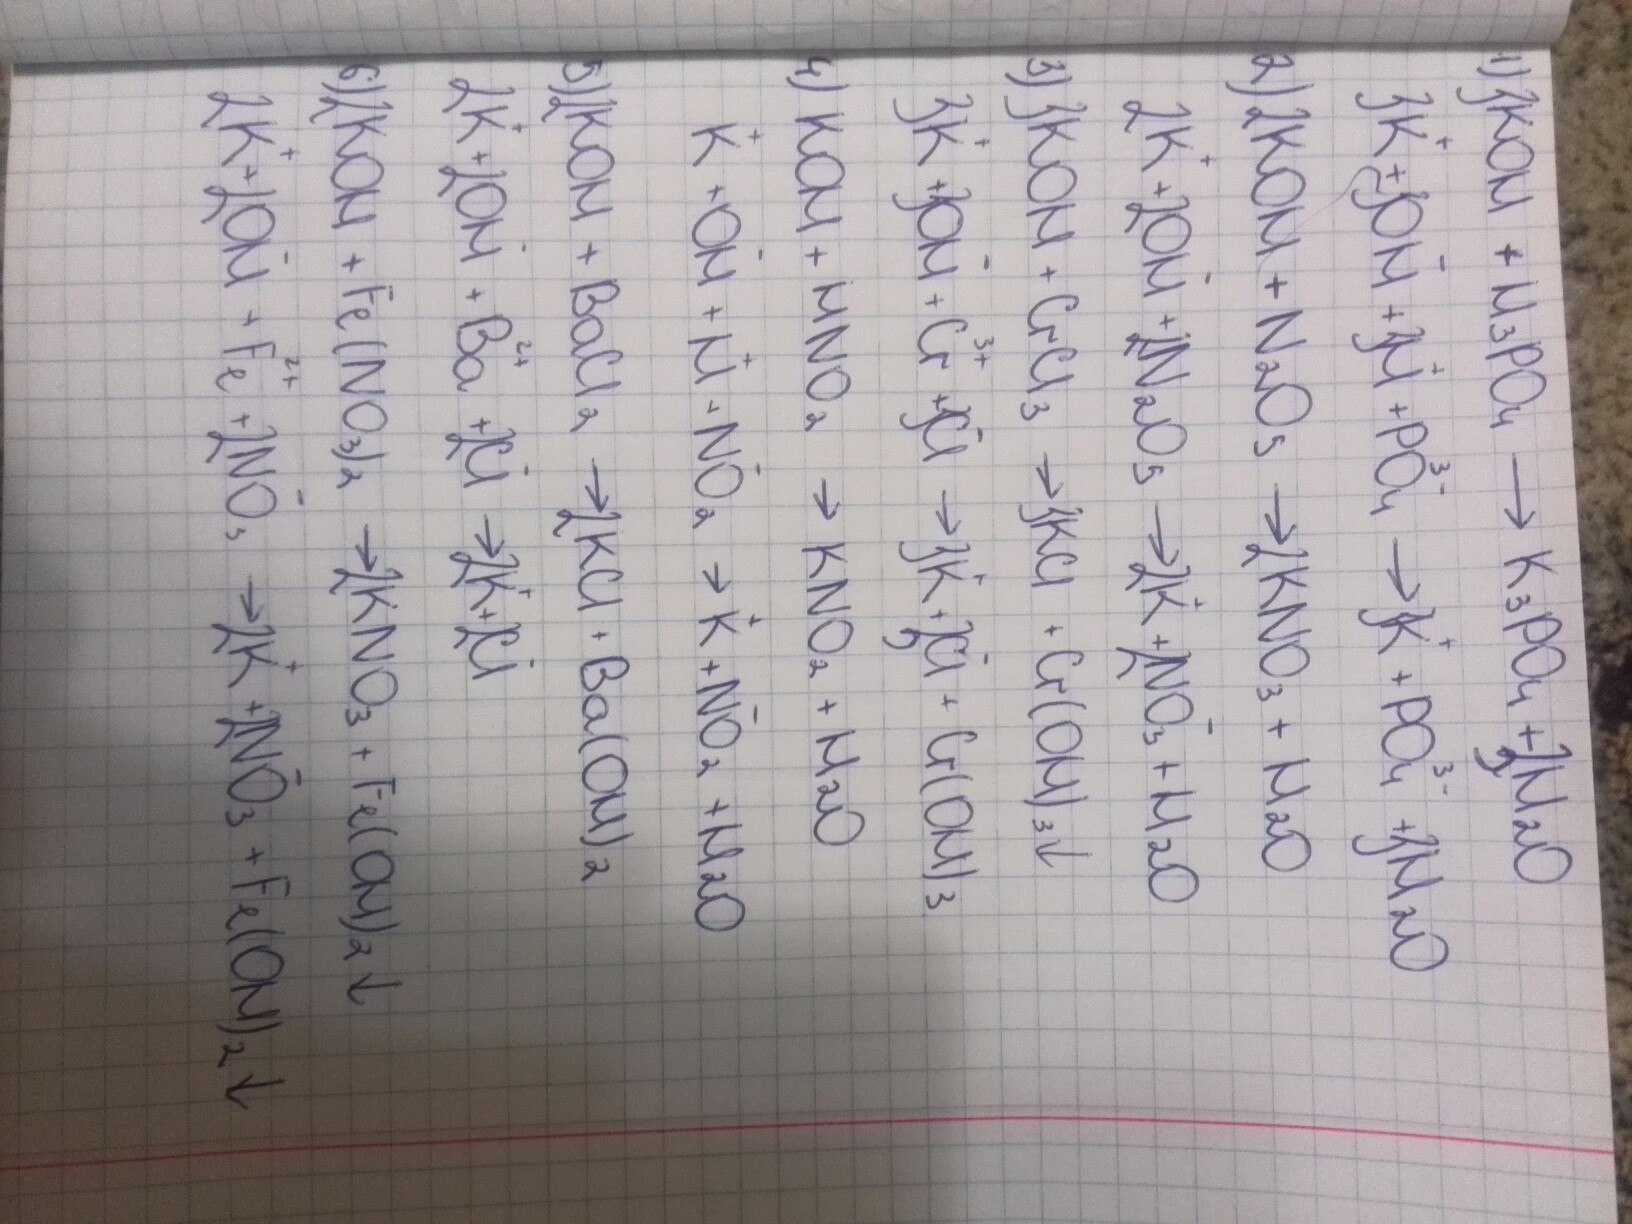 1) 3KOH + H₃PO₄ → K₃PO₄ + 3H₂O
3K⁺ + 3OH⁻ + 3H⁺ + PO₄³⁻ → 3K⁺ + PO₄³⁻ + 3H₂O
2) 2KOH + N₂O₅ → 2KNO₃ + H₂O
2K⁺ + 2OH⁻ + N₂O₅ → 2K⁺ + 2NO₃⁻ + H₂O
3) 3KOH + CrCl₃ → 3KCl + Cr(OH)₃↓
3K⁺ + 3OH⁻ + Cr³⁺ + 3Cl⁻ → 3K⁺ + 3Cl⁻ + Cr(OH)₃
4) KOH + HNO₂ → KNO₂ + H₂O
K⁺ + OH⁻ + H⁺ + NO₂⁻ → K⁺ + NO₂⁻ + H₂O
5) 2KOH + BaCl₂ → 2KCl + Ba(OH)₂
2K⁺ + 2OH⁻ + Ba²⁺ + 2Cl⁻ → 2K⁺ + 2Cl⁻
6) 2KOH + Fe(NO₃)₂ → 2KNO₃ + Fe(OH)₂↓
2K⁺ + 2OH⁻ + Fe²⁺ + 2NO₃⁻ → 2K⁺ + 2NO₃⁻ + Fe(OH)₂↓